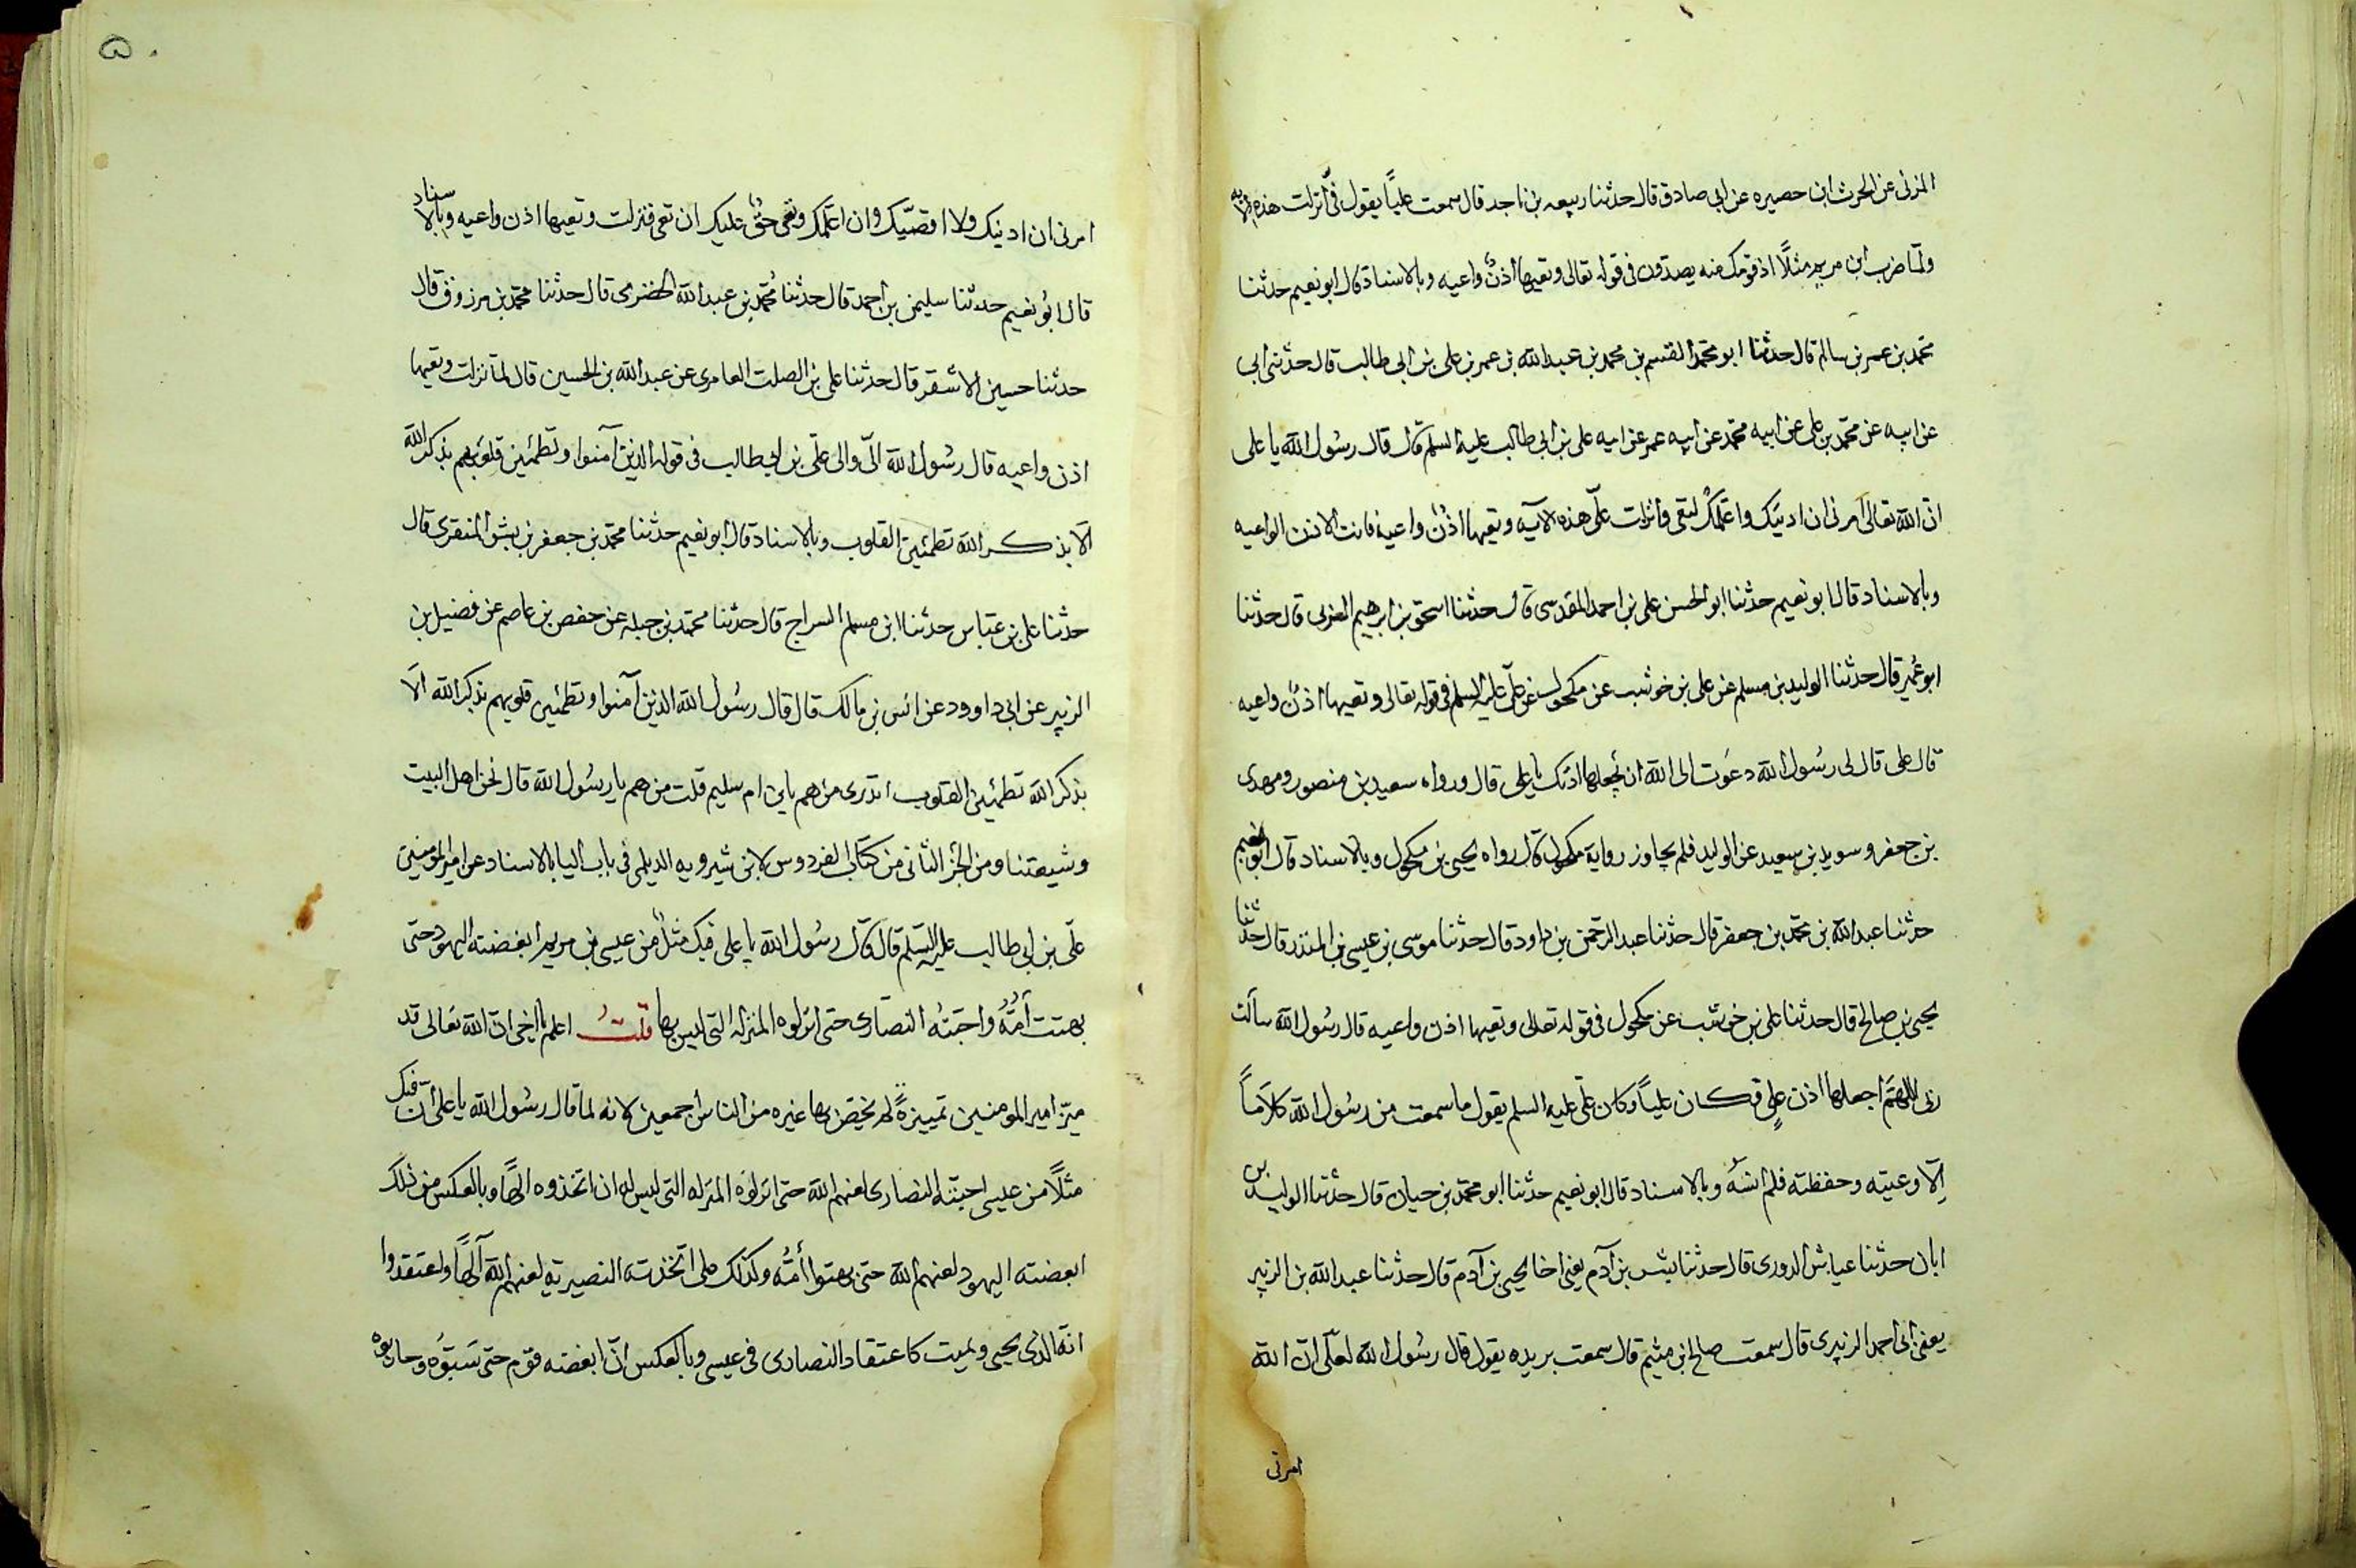 المزنى عن الحرث ابن حصيره عن ابى صادق قال حدثنا ربيعه بن ناجد قال سمعت علياً يقول فىّ انزلت هذه الآيه
ولمّا ضرب ابن مريم مثلاً اذ قومك منه يصدّون فى قوله تعالى وتعيها اذنٌ واعيه وبالاسناد قال ابو نعيم حدثنا
محمّد بن عمر بن سالم قال حدثنا ابو محمّد القسم بن محمد بن عبد الله بن عمر بن على بن ابى طالب قال حدثنى ابى
عن ابيه عن محمّد بن على عن ابيه محمّد عن ابيه عمر عن ابيه على بن ابى طالب عليه السلم قال قال رسُول الله يا على
انّ الله تعالى امرنى ان ادنيَك واعَلّمكَ لتعى وانزلت علىّ هذه الآيه وتعيها اذنٌ واعية فانت الاذن الواعيه
وبالاسناد قال ابو نعيم حدثنا ابو الحسن على بن احمد المقدسى قال حدثنا اسحق بن ابرهيم الغزى قال حدثنا
ابو عُمير قال حدثنا الوليد بن مسلم عن على بن خوشب عن مكحول عن علىّ عليه السلم فى قوله تعالى وتعيها اذنٌ واعيه
قال على قال لى رسُول الله دعَوت الى الله ان يجعلها اذنك يا على قال ورواه سعيد بن منصور ومهدى
بن جعفر وسويد بن سعيد عن الوليد فلم يجاوز رواية مكحول قال رواه يحيى بن مكحول وبالاسناد قال ابو نعيم
حدثنا عبد الله بن محمّد بن جعفر قال حدثنا عبد الرحمن بن داود قال حدثنا موسى بن عيسى بن المنذر قال حدثنا
يحيى بن صالح قال حدثنا على بن خوشب عن مكحول فى قوله تعالى وتعيها اذن واعيه قال رسُول الله سألت
ربى اللهمّ اجعلها اذن علىٍ فكان علياً وكان علىّ عليه السلم يقول ما سمعت من رسُول الله كلاَماً
اِلاّ وعيته وحفظته فلم انسَهُ وبالاسناد قال ابو نعيم حدثنا ابو محمّد بن حيان قال حدثنا الوليد بن
ابان حدثنا عياش الدورى قال حدثنا بشر بن آدم يعنى اخا يحيى بن آدم قال حدثنا عبد الله بن الزبير
يعنى ابى احمد الزبيرى قال سمعت صالح بن ميثم قال سمعت بريده يقول قال رسُول الله لعلىّ انّ الله
امرنى
امرنى ان ادنيك ولا اقصّيك وان اعَلّمك وتعى حقٌّ عليك ان تعى فنزلت وتعيها اذن واعيه وبالاسناد
قال ابُو نعيم حدثنا سليمن بن احمد قال حدثنا مُحمّد بن عبد الله الحضرمى قال حدثنا محمّد بن مرزوق قال
حدثنا حسين الاشقر قال حدثنا على بن الصلت العامرى عن عبد الله بن الحسين قال لمّا نزلت وتعيها
اذن واعيه قال رسُول الله الىّ والى علىّ بن ابى طالب فى قوله الذين آمنوا وتطمئين قلوبهم بذكر الله
اَلا بذكر الله تطمئين القلوب وبالاسناد قال ابو نعيم حدثنا محمّد بن جعفر بن بشر المنقرى قال
حدثنا على بن عبّاس حدثنا ابن مسلم السراج قال حدثنا محمّد بن جبله عن حفص بن عاصم عن فضيل بن
الزبير عن ابى داوود عن انس بن مالك قال قال رسُول الله الذين آمنوا وتطمئين قلوبهم بذكر الله اَلا
بذكر الله تطمئين القلوب اتدرى من هم يا بن ام سليم قلت من هم يا رسُول الله قال نحن اهل البيت
وشيعتنا ومن الجُز الثانى من كتاب الفردوس لابن شيرويه الديلمى فى باب اليا بالاسناد عن امير المومنين
علىّ بن ابى طالب عليه السّلم قال قال رسُول الله يا على فيك مثلٌ من عيسى بن مريم ابغضته اليهود حتى
بهتت اُمّهُ واحبّتهُ النصارى حتى انزلوه المنزلة التى ليس بها قلتُ اعلم يا اخى انّ الله تعَالى قد
ميّز امير المومنين تمييزةً لم يختص بها غيره من الناس اجمعين لانه لما قال رسُول الله يا على انّ فيك
مثلاً من عيسى احبّته النصارى لعنهم الله حتى انزلوه المنزله التى ليس له ان اتخذوه الٰهاً وبالعكس من ذلك
ابغضته اليهود لعنهم الله حتى بهتوا اُمّه وكذلك على اتّخذته النصيرية لعنهم الله آلهاً واعتقدوا
انهّ الذى يحيى ويميت كاعتقاد النصارى فى عيسى وبالعكس انّ ابغضته قوَم حتى سَبّوُه وحاربوه